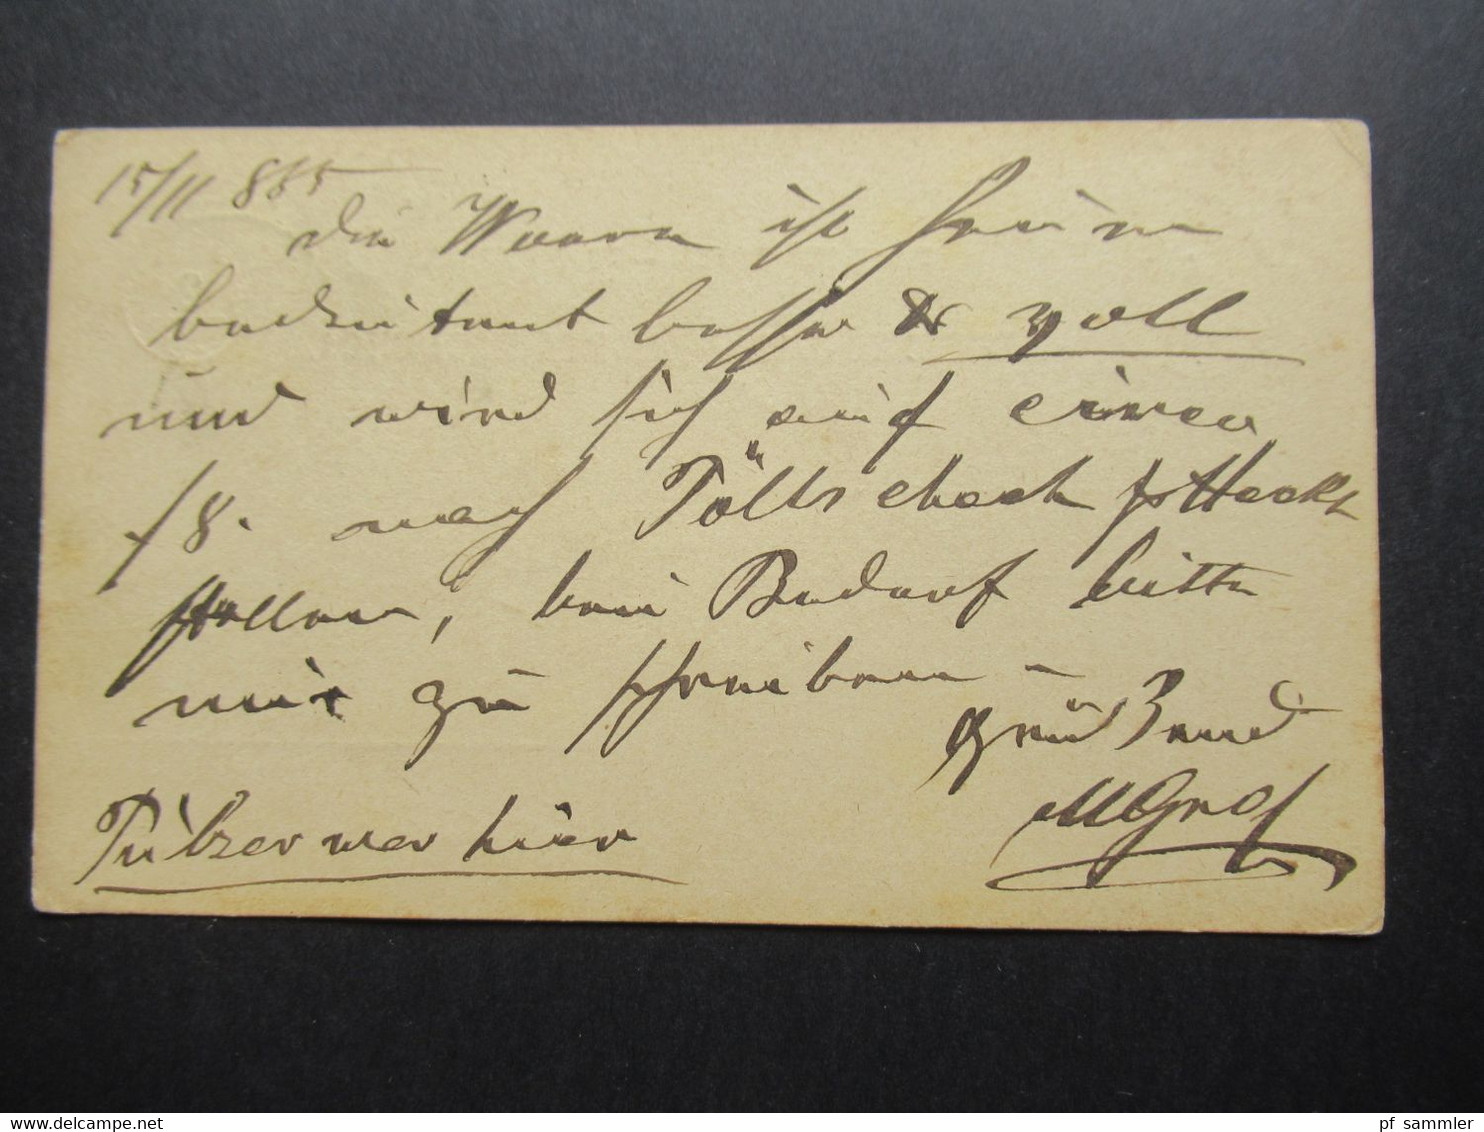 15/11 885
die Waare ist heuer
bedeutent besser & voll
und wird sich auf circa
f 8. nach Pöltschach
stellen, bei Bedarf bitte
mir zu schreiben –
Grüßend
MGraf
war hier
www.delcampe.net
pf_sammler